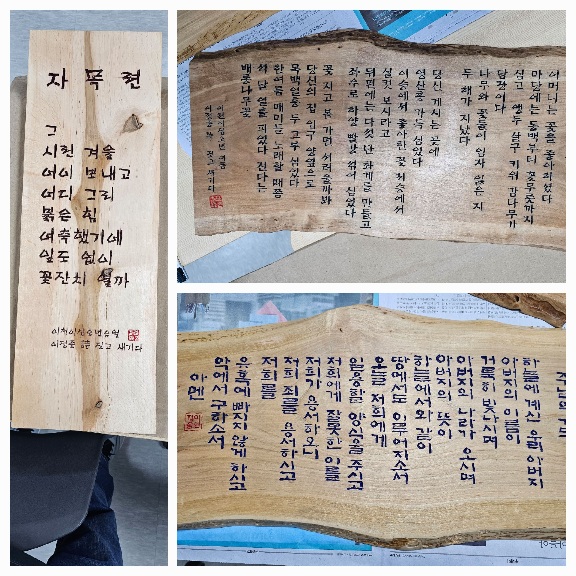 자 목 련
그
시린 겨울
어이 보내고
어디 그리
붉은 힘
여축했기에
잎도 없이
꽃잔치 열까
詩 짓고 새기다
어머니는 꽃을 좋아하셨다
마당에는 동백부터 꽃무릇까지
심고 앵두 살구 키위 감나무가
담장이다
나무와 꽃들이 임자 잃은 지
두 해가 지났다
당신 계시는 곳에
영산홍 가득 심었다
이승에서 좋아한 꽃 저승에서
실컷 보시라고
뒤편에는 다섯 단 화계를 만들고
좌우로 하양 빨강 섞어 심었다
꽃 지고 봄 가면 서러울까봐
당신의 집 입구 양옆으로
목백일홍 두 그루 심었다
한여름 매미 노래할 때쯤
석 달 열흘 피었다 진다는
배롱나무꽃
짓고 새기다
주님의 기도
하늘에 계신 우리 아버지
아버지의 이름이
거룩히 빛나시며
아버지의 나라가 오시며
아버지의 뜻이
하늘에서와 같이
땅에서도 이루어지소서
오늘 저희에게
일용할 양식을 주시고
저희에게 잘못한 이를
저희가 용서하오니
저희 죄를 용서하시고
저희를
유혹에 빠지지 않게 하시고
악에서 구하소서
아멘